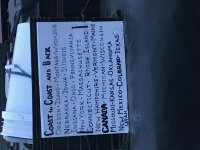 COAST TO COAST AND BACK
OREGON-IDAHO-MONTANA-WYOMING
NEBRASKA-IOWA-ILLINOIS
INDIANA-OHIO-PENNSYLVANIA
NEW YORK-MASSACHUSETTS
CONNECTICUT-RHODE ISLAND
NEW HAMPSHIRE-VERMONT-MAINE
CANADA-MICHIGAN-WISCONSIN
MISSOURI-KANSAS-OKLAHOMA
NEW MEXICO-COLORADO-TEXAS